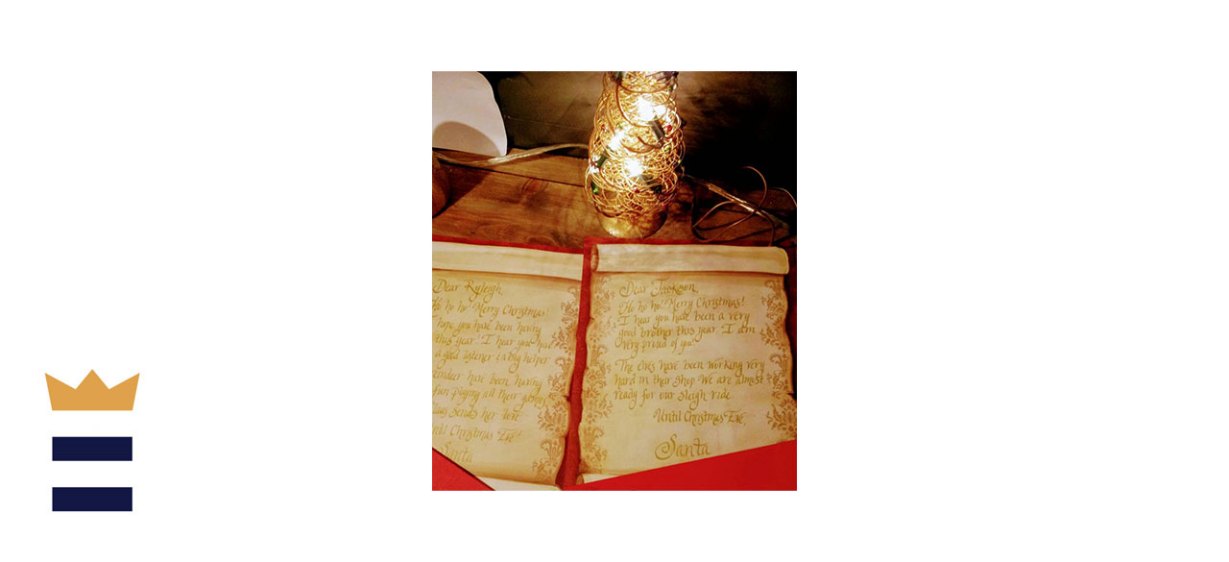 Dear Ryleigh,
Ho ho ho! Merry Christmas!
hope you have been having
this year. I hear you have
a good listener & big helper
reindeer have been having
fun playing all their games
sends her love
Until Christmas Eve
Santa
Dear Jackson,
Ho ho ho! Merry Christmas!
I hear you have been a very
good brother this year. I am
very proud of you.
The elves have been working very
hard in their shop. We are almost
ready for our sleigh ride.
Until Christmas Eve,
Santa